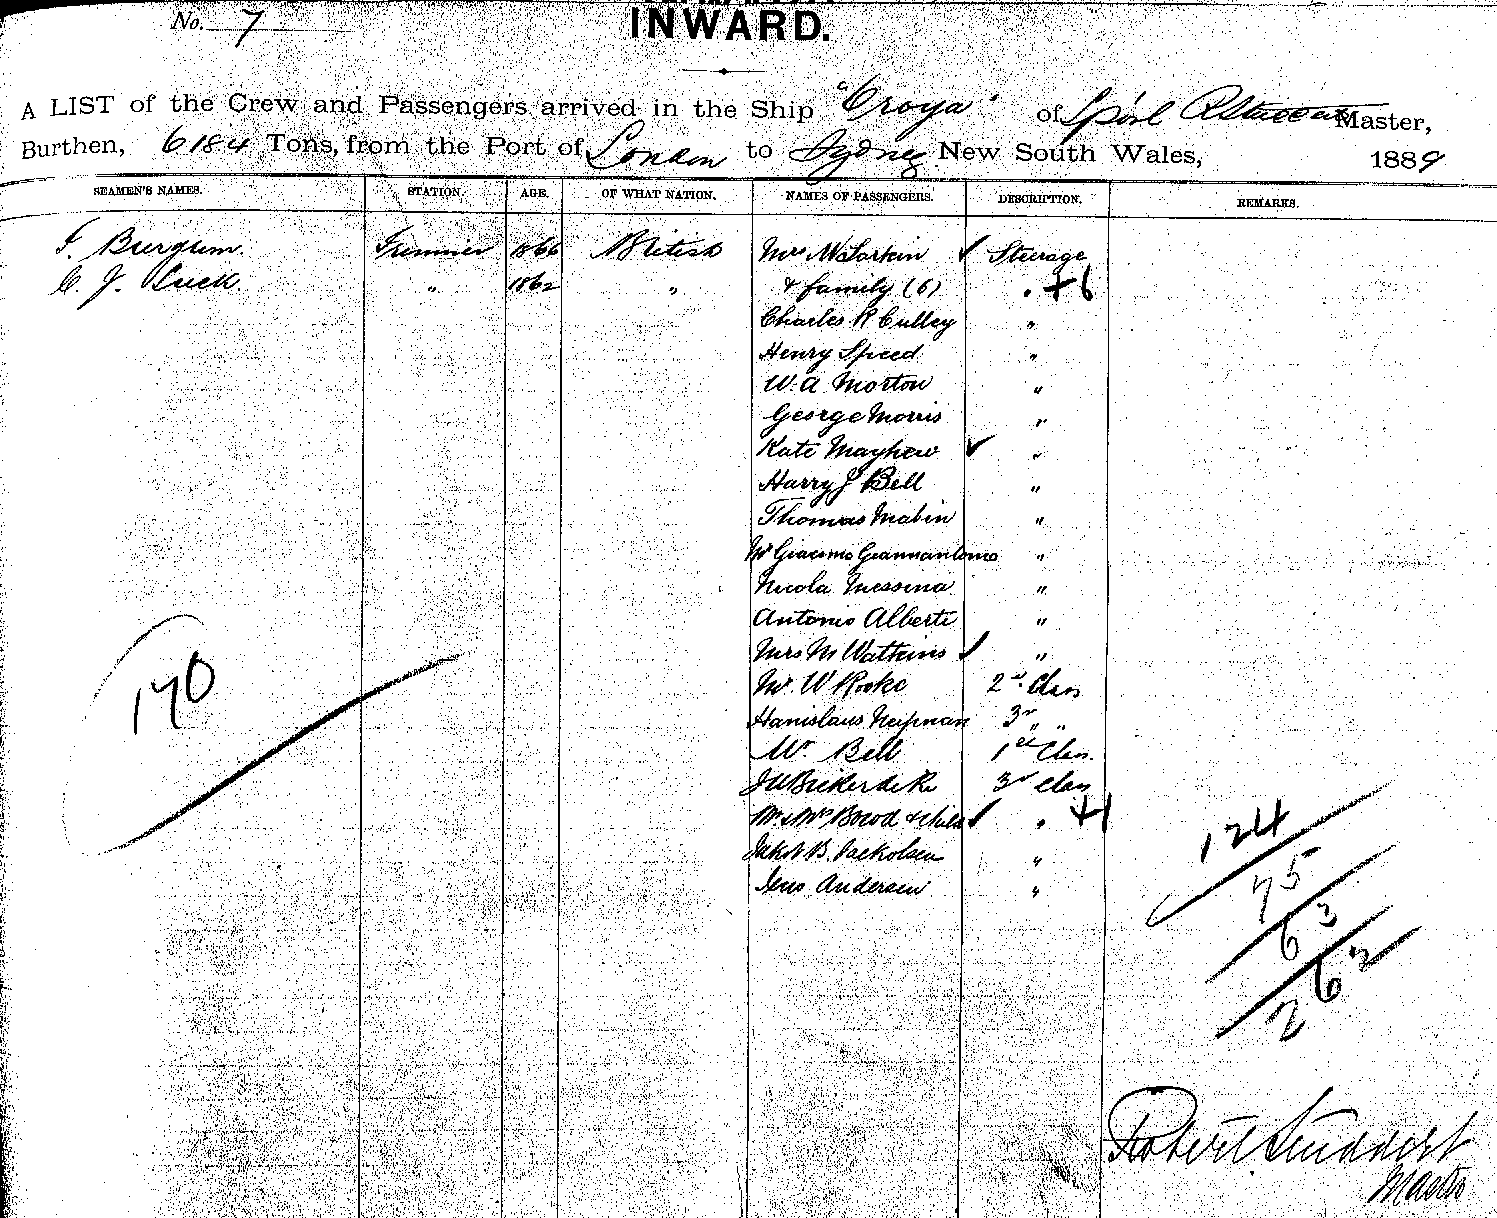 No. 7
INWARD.
A LIST of the Crew and Passengers arrived in the Ship "Oroya" of Master,
Burthen, 6184 Tons, from the Port of London to Sydney New South Wales, 1889
SEAMEN'S NAMES. STATION. AGE. OF WHAT NATION. NAMES OF PASSENGERS. DESCRIPTION. REMARKS.
F. Burgum. Trimmer 1866 British Mrs McLarkin ✓ Steerage
C. J. Luck. " 1862 " & family (6) " +6
Charles R Culley "
Henry Speed "
W. A Morton "
George Morris "
Kate Mayhew ✓ "
Harry J Bell "
Thomas Mabin "
Mr Giacomo Giannantonio "
Nicola Messina "
Antonio Alberti "
Mrs M Watkins ✓ "
Mr. W Rooke 2nd Class
Stanislaus Neipman 3rd " "
Mr Bell 1st Class.
J W Bickerdeke 3rd Class
Mr & Mrs Bowd & child ✓ " +1
Jakob B. Jackolsen "
Jens Andersen "
170
124
75
63
262
Robert Studdert
Master